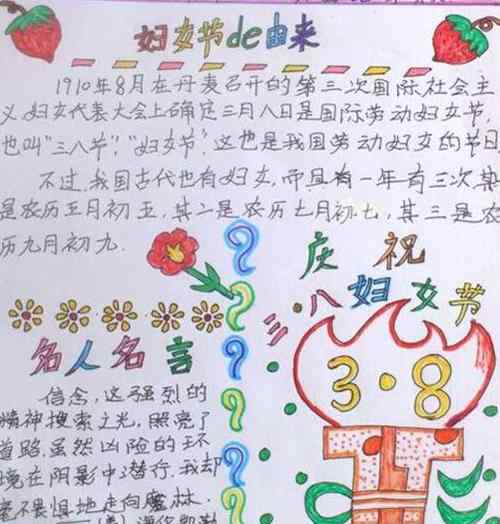 妇女节de由来
1910年8月在丹麦召开的第三次国际社会主
义妇女代表大会上确定三月八日是国际劳动妇女节,
也叫"三八节","妇女节",这也是我国劳动妇女的节日
不过,我国古代也有妇女,而且有一年有三次,其
是农历三月初五,其二是农历七月初七,其三是农
历九月初九.
庆祝
三·八妇女节
3·8
名人名言
信念,这强烈的
精神搜索之光,照亮了
道路,虽然凶险的环
境在阴影中潜行,我却
毫不畏惧地走向魔林.